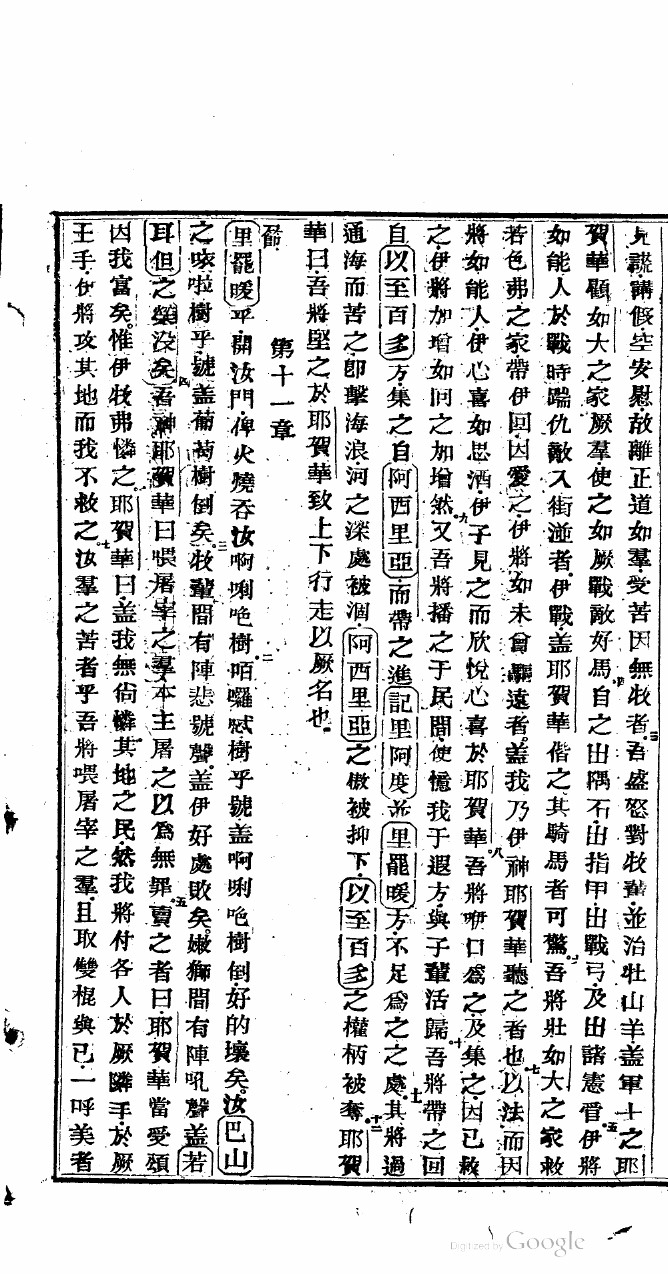 見謊講假空安慰故離正道如羣受苦因無牧者三吾盛怒對牧輩並治牡山羊盖軍士之耶
賀華顧如大之家厥羣使之如厥戰敵好馬四自之出隅石出指甲出戰弓及出諸憲晋五伊將
如能人於戰時踹仇敵入街湴者伊戰盖耶賀華偕之其騎馬者可驚六吾將壯如大之家救
若色弗之家帶伊回因愛之伊將如未曾屬遠者盖我乃伊神耶賀華聽之者也七以法而因
將如能人伊心喜如思酒伊子見之而欣悅心喜於耶賀華八吾將咿口爲之及集之因已救
之伊將加增如同之加增然九又吾將播之于民間使憶我于遐方與子輩活歸十吾將帶之回
自以至百多方集之自阿西里亞而帶之進記里阿度並里罷暖方不足爲之之處十一其將過
通海而苦之卽擊海浪河之深處被涸阿西里亞之傲被抑下以至百多之權柄被奪十二耶賀
華曰吾將堅之於耶賀華致上下行走以厥名也
第十一章
里罷暖乎開汝門俾火燒吞汝啊唎吔樹二㕷囉㘽樹乎號盖啊唎吔樹倒好的壞矣汝巴山
之咴啦樹乎號盖葡萄樹倒矣三牧輩間有陣悲號聲盖伊好處敗矣嫩獅間有陣吼聲盖若
耳但之榮沒矣四吾神耶賀華曰喂屠宰之羣五本主屠之以爲無罪賣之者曰耶賀華當受頌
因我富矣惟伊牧弗憐之六耶賀華曰盖我無尙憐其地之民然我將付各人於厥隣手於厥
王手伊將攻其地而我不救之七汝羣之苦者乎吾將喂屠宰之羣且取雙棍與己一呼美者
Digitized by Google